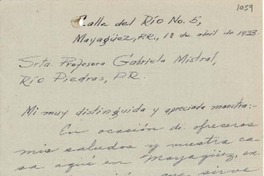 1059
Calle del Río No. 5,
Mayagüez, P.R., 18 de abril de 1933
Srta. Profesora Gabriela Mistral,
Río Piedras, P.R.
Mi muy distinguida y apreciada maestra:-
En ocasión de ofreceros
mis saludos y nuestra ca-
sa aquí en Mayagüez,
que sirva